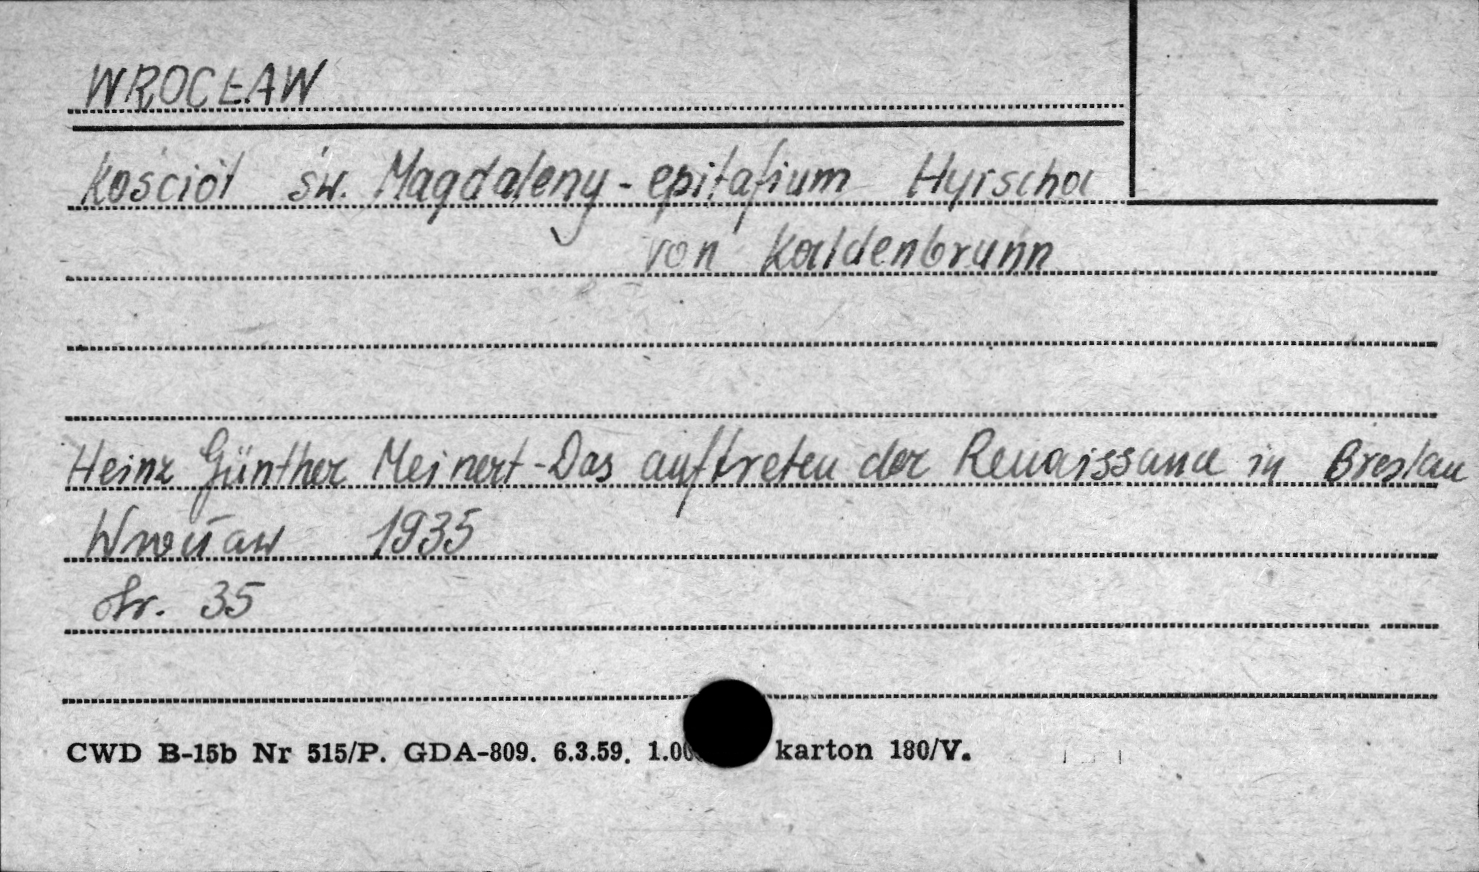 WROCŁAW
Kościół św. Magdaleny - epitafium Hyrscha
von Kaldenbrunn
Heinz Günther Meinert - Das auftreten der Renaissance in Breslau
Wrocław 1935
str. 35
CWD B-15b Nr 515/P. GDA-809. 6.3.59. 1.00 karton 180/V.